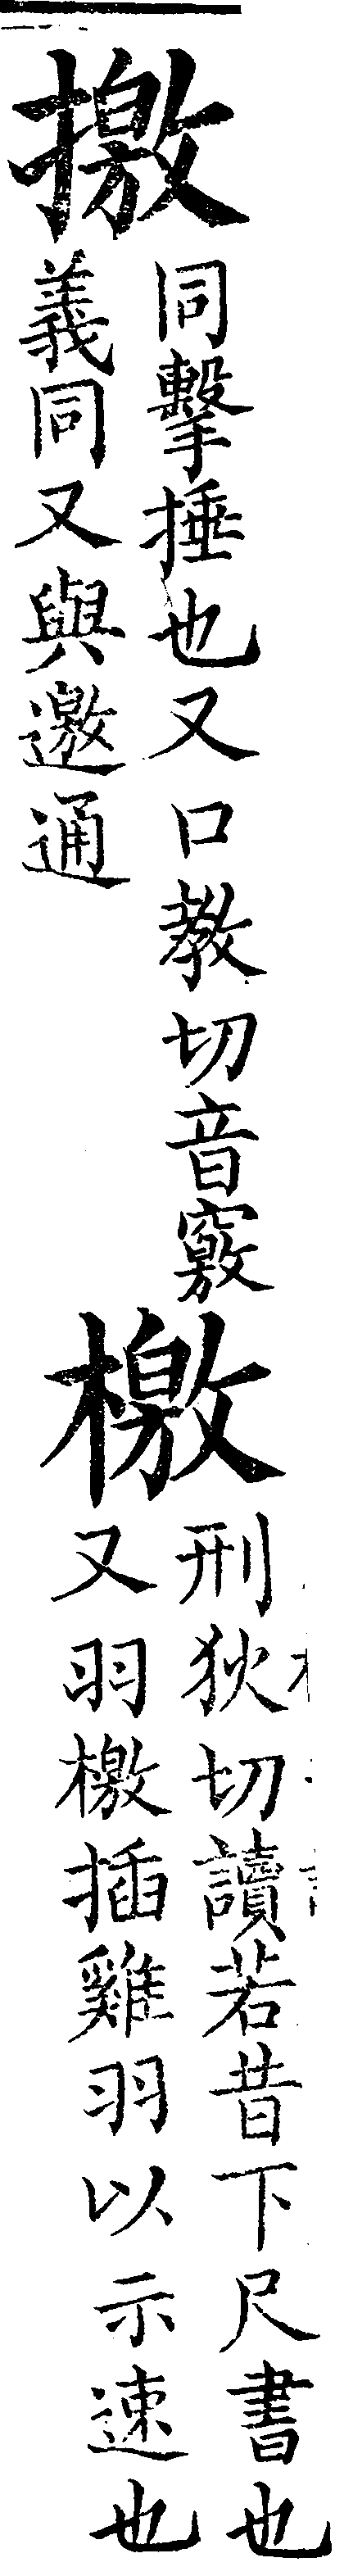 撽
同擊捶也又口教切音竅
義同又與邀通
檄
刑狄切讀若昔下尺書也
又羽檄插雞羽以示速也